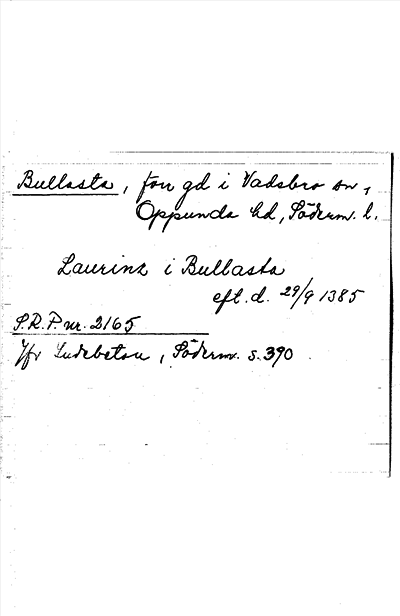 Bullasta, fou gd i Vadsbro sn,
Oppunda hd, Söderm. l.
Laurinz i Bullasta
eft. d. 29/9 1385
S.R.P. nr. 2165
Jfr Ludebetou, Söderm. s. 390